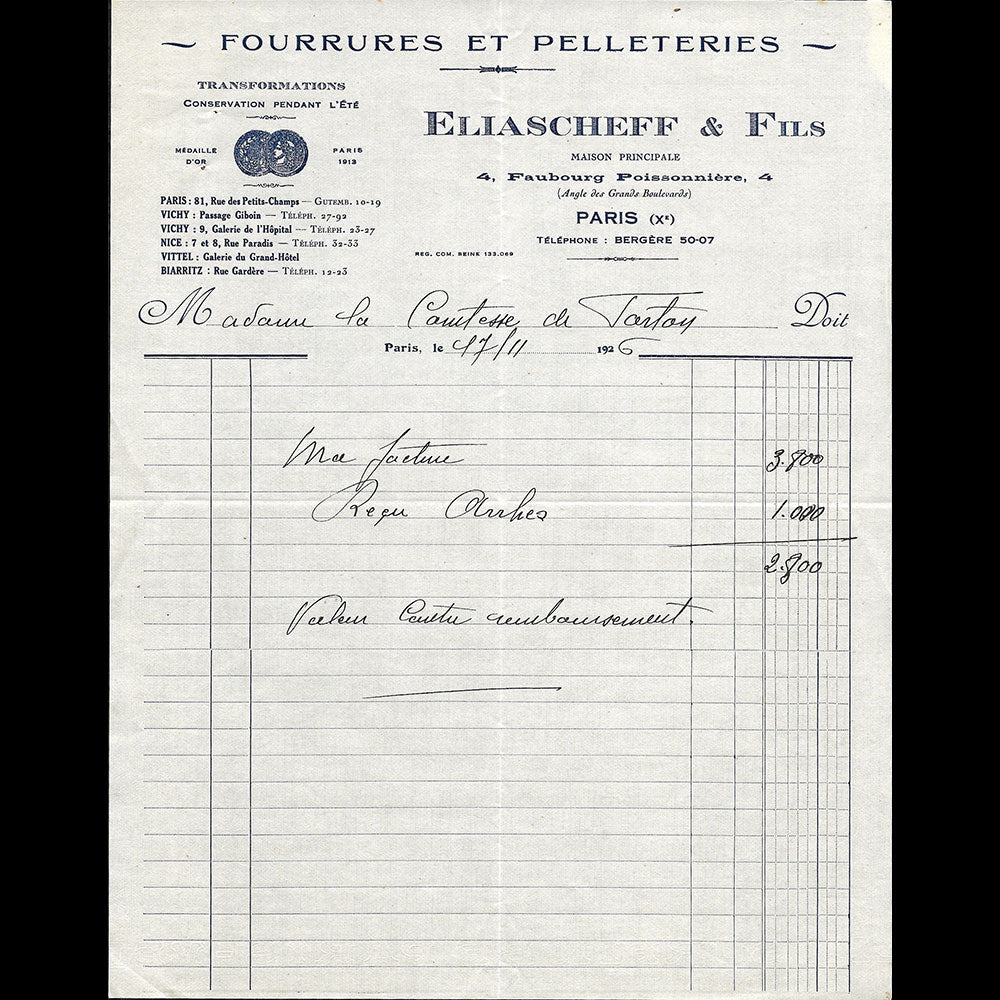 FOURRURES ET PELLETERIES
TRANSFORMATIONS
CONSERVATION PENDANT L'ÉTÉ
MÉDAILLE D'OR PARIS 1913
PARIS : 81, Rue des Petits-Champs — GUTEMB. 10-19
VICHY : Passage Giboin — TÉLÉPH. 27-92
VICHY : 9, Galerie de l'Hôpital — TÉLÉPH. 23-27
NICE : 7 et 8, Rue Paradis — TÉLÉPH. 32-33
VITTEL : Galerie du Grand-Hôtel
BIARRITZ : Rue Gardère — TÉLÉPH. 12-23
ELIASCHEFF & FILS
MAISON PRINCIPALE
4, Faubourg Poissonnière, 4
(Angle des Grands Boulevards)
PARIS (Xe)
TÉLÉPHONE : BERGÈRE 50-07
REG. COM. SEINE 133.069
Madame la Comtesse de Doit
Paris, le 17/11 1926
Ma facture 3.800
Reçu Arrhes 1.000
2.800
Valeur Contre remboursement.